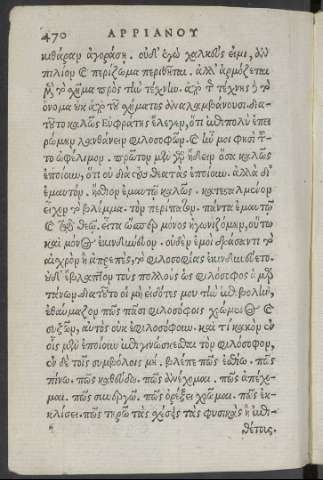 470 ΑΡΡΙΑΝΟΥ
κιθάραν ἀγοράσῃ. οὐδ' ἐγὼ χαλκεύς εἰμι, ἂν
πιλίον καὶ περίζωμα περιθῆται. ἀλλ' ἁρμόζεται
μὲν τὸ σχῆμα πρὸς τὴν τέχνην. ἀπὸ τῆς τέχνης ἢ τὸ
ὄνομα οὐκ ἀπὸ τοῦ σχήματος ἀναλαμβάνουσι. διὰ
τοῦτο καλῶς Εὐφράτης ἔλεγεν, ὅτι ἐπὶ πολὺ ἐπει
ρώμην λανθάνειν φιλοσοφῶν. καὶ ἦν μοι φησὶ τοῦ
το ὠφέλιμον. πρῶτον μὲν γὰρ ᾔδειν ὅσα καλῶς
ἐποίουν, ὅτι οὐ διὰ τοὺς θεατὰς ἐποίουν. ἀλλὰ δι'
ἐμαυτόν. ἤσθιον ἐμαυτῷ καλῶς. κατεσταλμένον
εἶχον τὸ βλέμμα. τὸν περίπατον. πάντα ἐμαυτῷ
καὶ τῷ θεῷ. εἶτα ὥσπερ μόνος ἠγωνιζόμην, οὕτω
καὶ μόνος ἐκινδύνευον. οὐδὲν ἐμοὶ δράσαντι τὸ
αἰσχρὸν ἢ ἀπρεπὲς, τὸ φιλοσοφίας ἐκινδυνεύετο.
οὐδ' ἔβλαπτον τοὺς πολλοὺς ὡς φιλόσοφος ἁμαρ
τάνων. διὰ τοῦτο οἱ μὴ εἰδότες μου τὴν ἐπιβολὴν,
ἐθαύμαζον πῶς πᾶσι φιλοσόφοις χρώμενος καὶ
συζῶν, αὐτὸς οὐκ ἐφιλοσόφουν. καὶ τί κακὸν ἐν
οἷς μὲν ἐποίουν ἐπιγινώσκεσθαι τὸν φιλόσοφον,
ἐν δὲ τοῖς συμβόλοις μή. βλέπε πῶς ἐσθίω. πῶς
πίνω. πῶς καθεύδω. πῶς ἀνέχομαι. πῶς ἀπέχο-
μαι. πῶς συνεργῶ. πῶς ὀρέξει χρῶμαι. πῶς ἐκ-
κλίσει. πῶς τηρῶ τὰς σχέσεις τὰς φυσικὰς ἢ ἐπι-
θέτους.